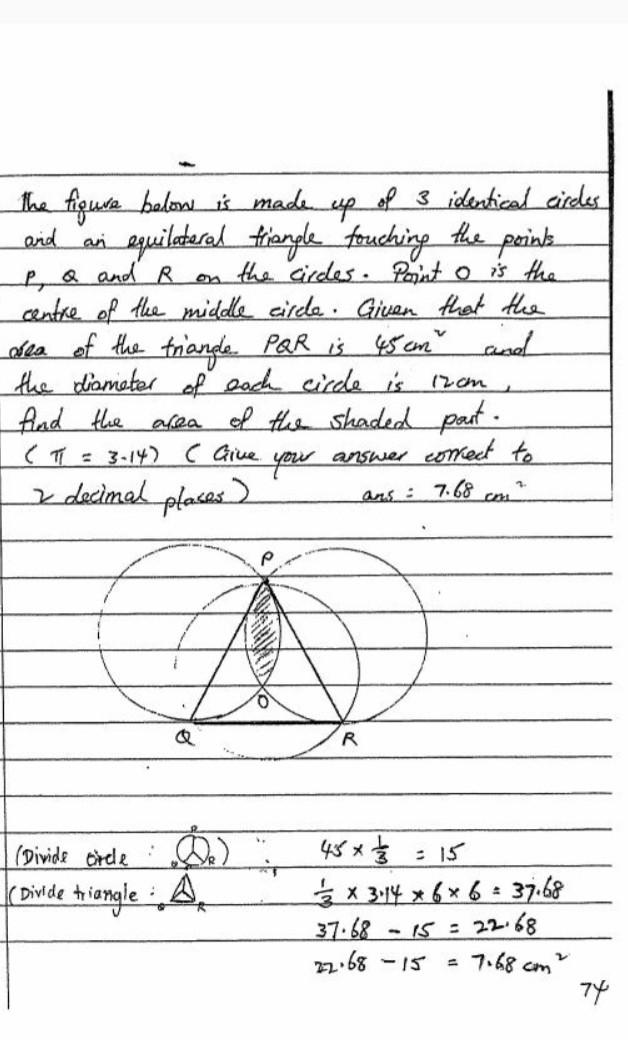 The figure below is made up of 3 identical circles
and an equilateral triangle touching the points
P, Q and R on the circles. Point O is the
centre of the middle circle. Given that the
area of the triangle PQR is 45 cm²  and
the diameter of each circle is 12 cm,
find the area of the shaded part.
(π = 3.14) (Give your answer correct to
2 decimal places)  ans = 7.68 cm²
P
O
Q R
(Divide circle : P Q R) ∴ 45 × 1/3 = 15
(Divide triangle : Q R 1/3 × 3.14 × 6 × 6 = 37.68
37.68 - 15 = 22.68
22.68 - 15 = 7.68 cm²
74